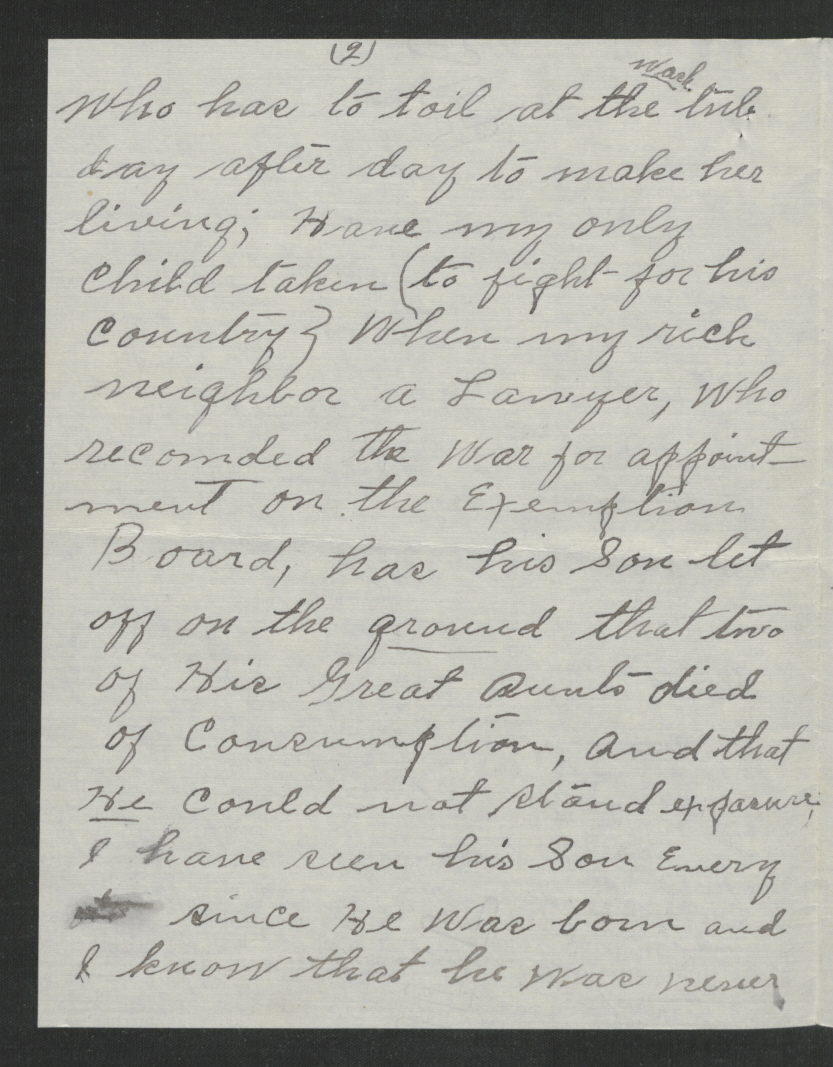 (2)
Who has to toil at the wash tub
day after day to make her
living; Have my only
Child taken (to fight for his
Country} When my rich
neighbor a Lawyer, Who
recomded the War for appoint-
ment on the Exemption
Board, has his Son let
off on the ground that two
of His Great Aunts died
of Consumption, And that
He Could not stand exposure,
I have seen his Son Every
since He Was born and
I know that he was never